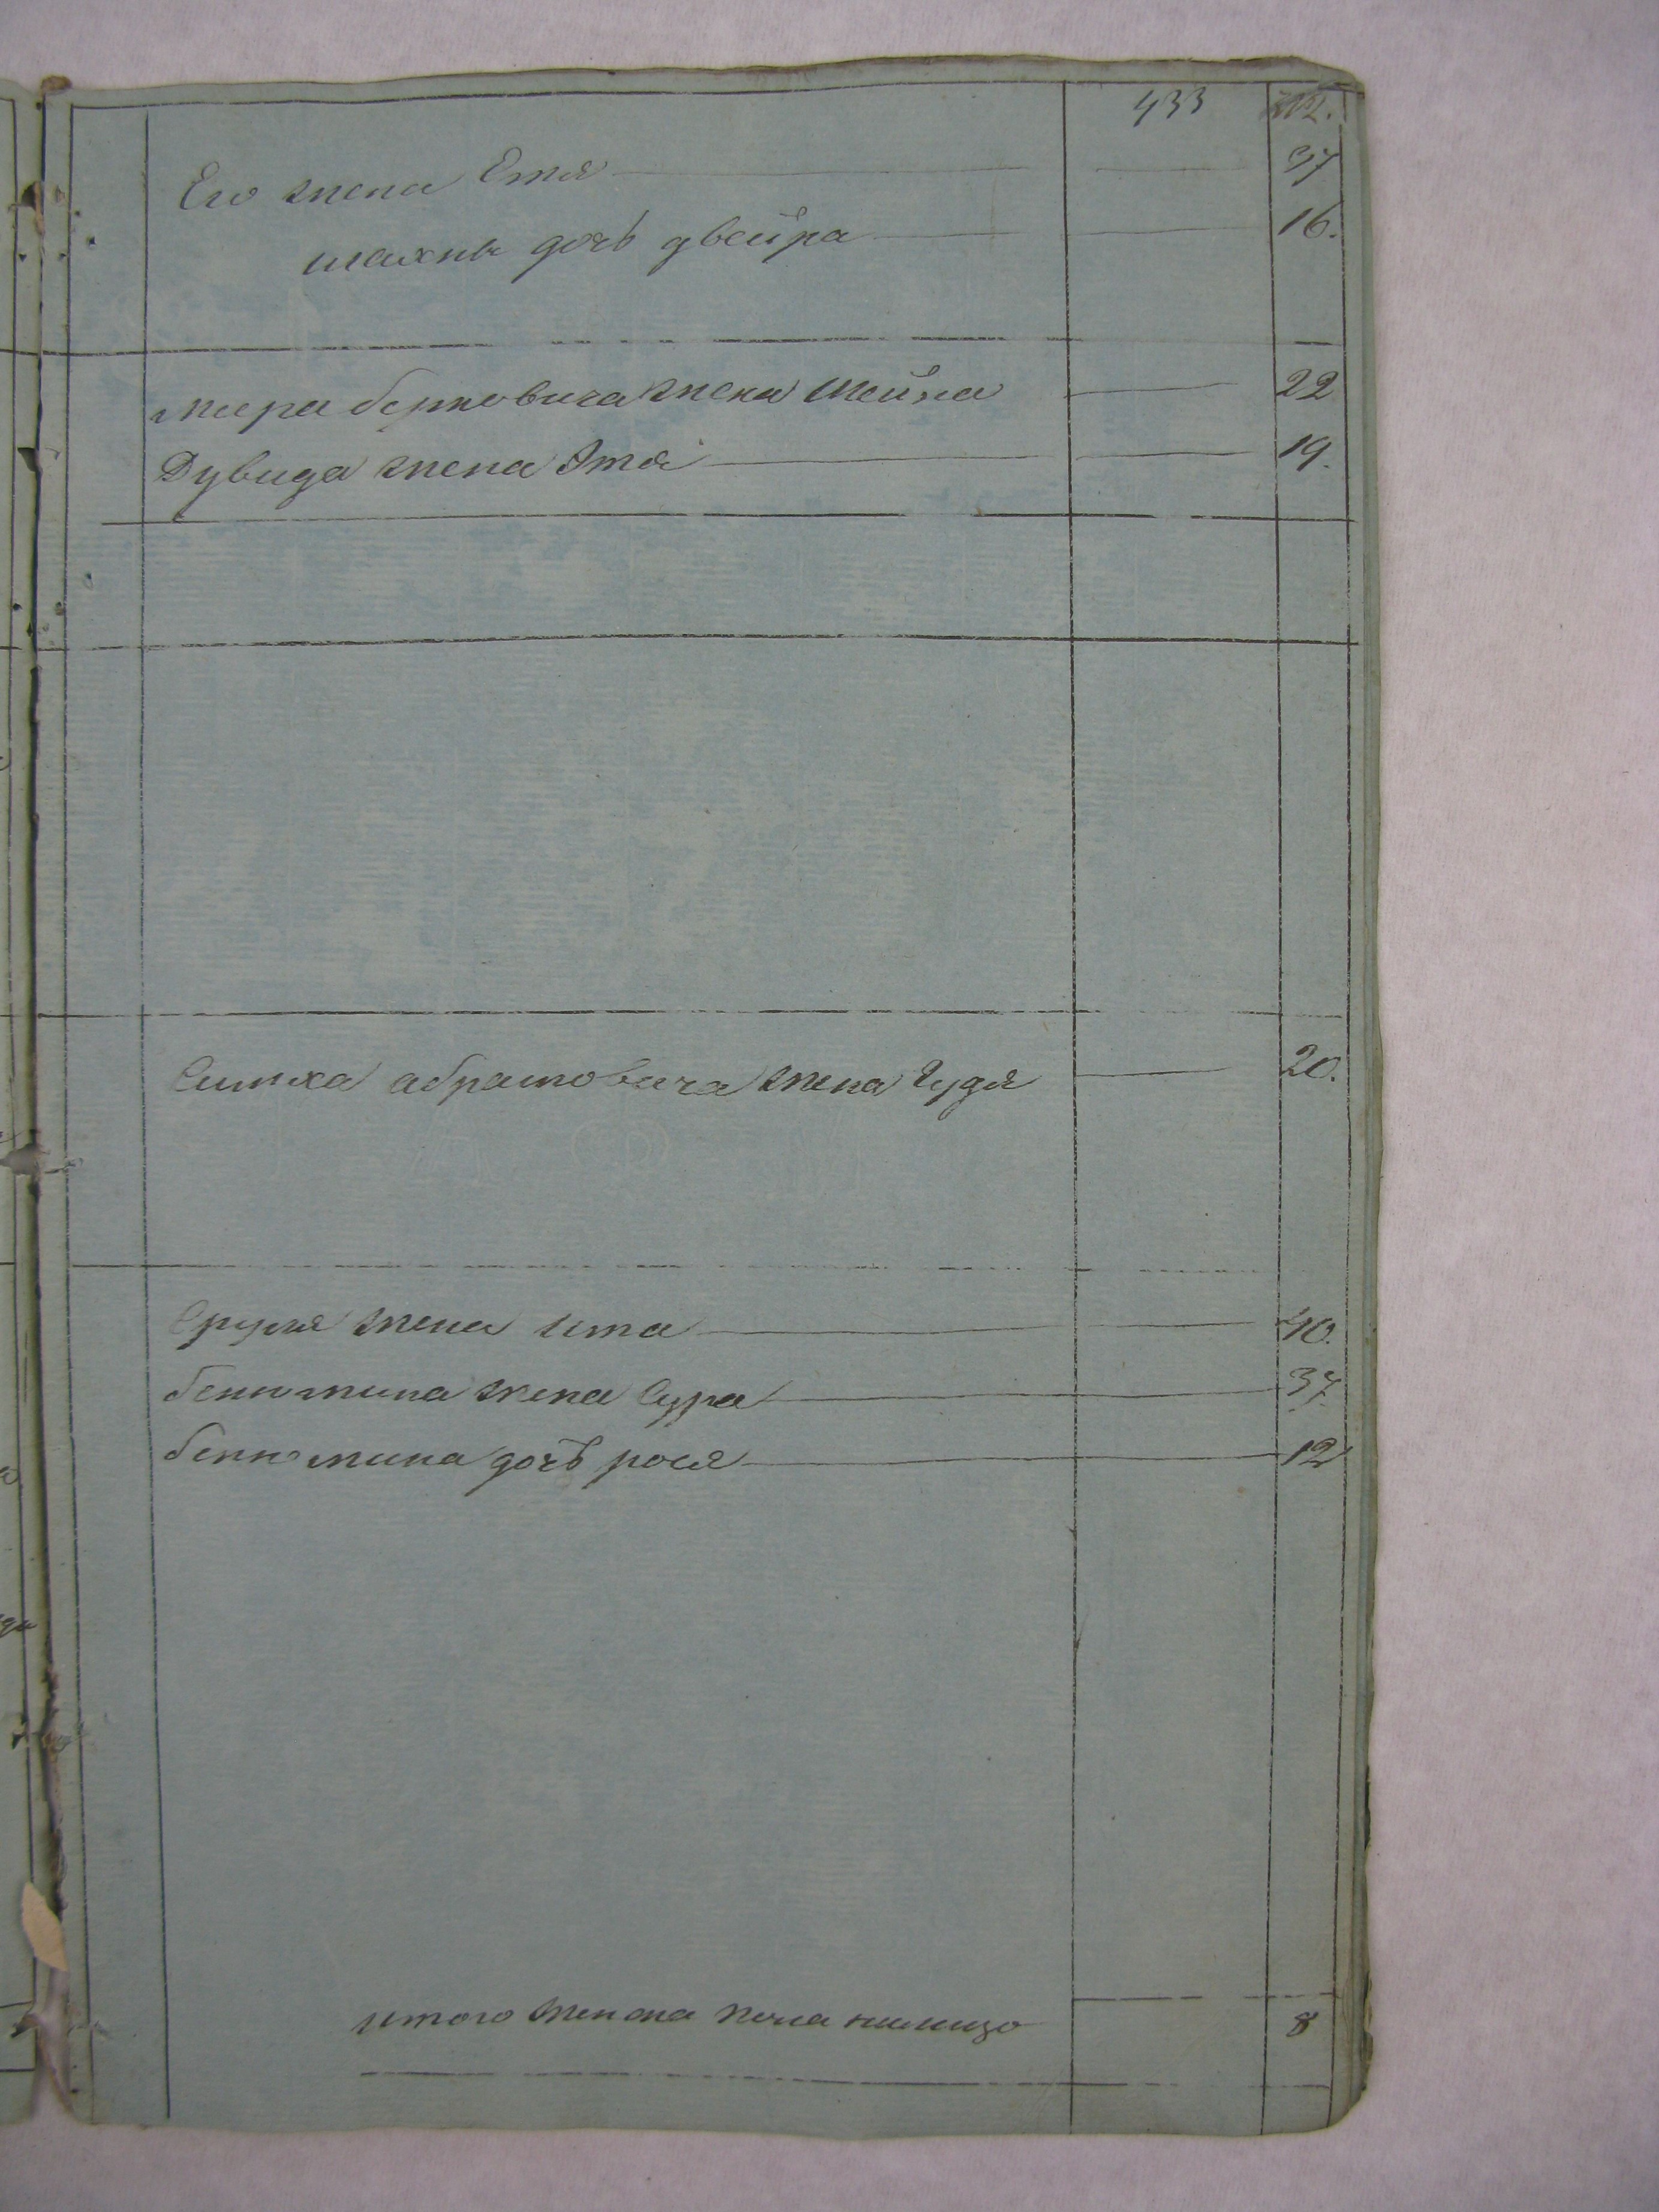 433 212.
Его жена Етя 37
шахны дочь двейра 16.
меера берковича жена Шейна 22
Дувида жена Этя 19.
Симха абрамовича жена Гудя 20.
Сруля жена ита 40.
бениомина жена Сура 37.
бениомина дочь рося 12
итого женска пола налицо 8